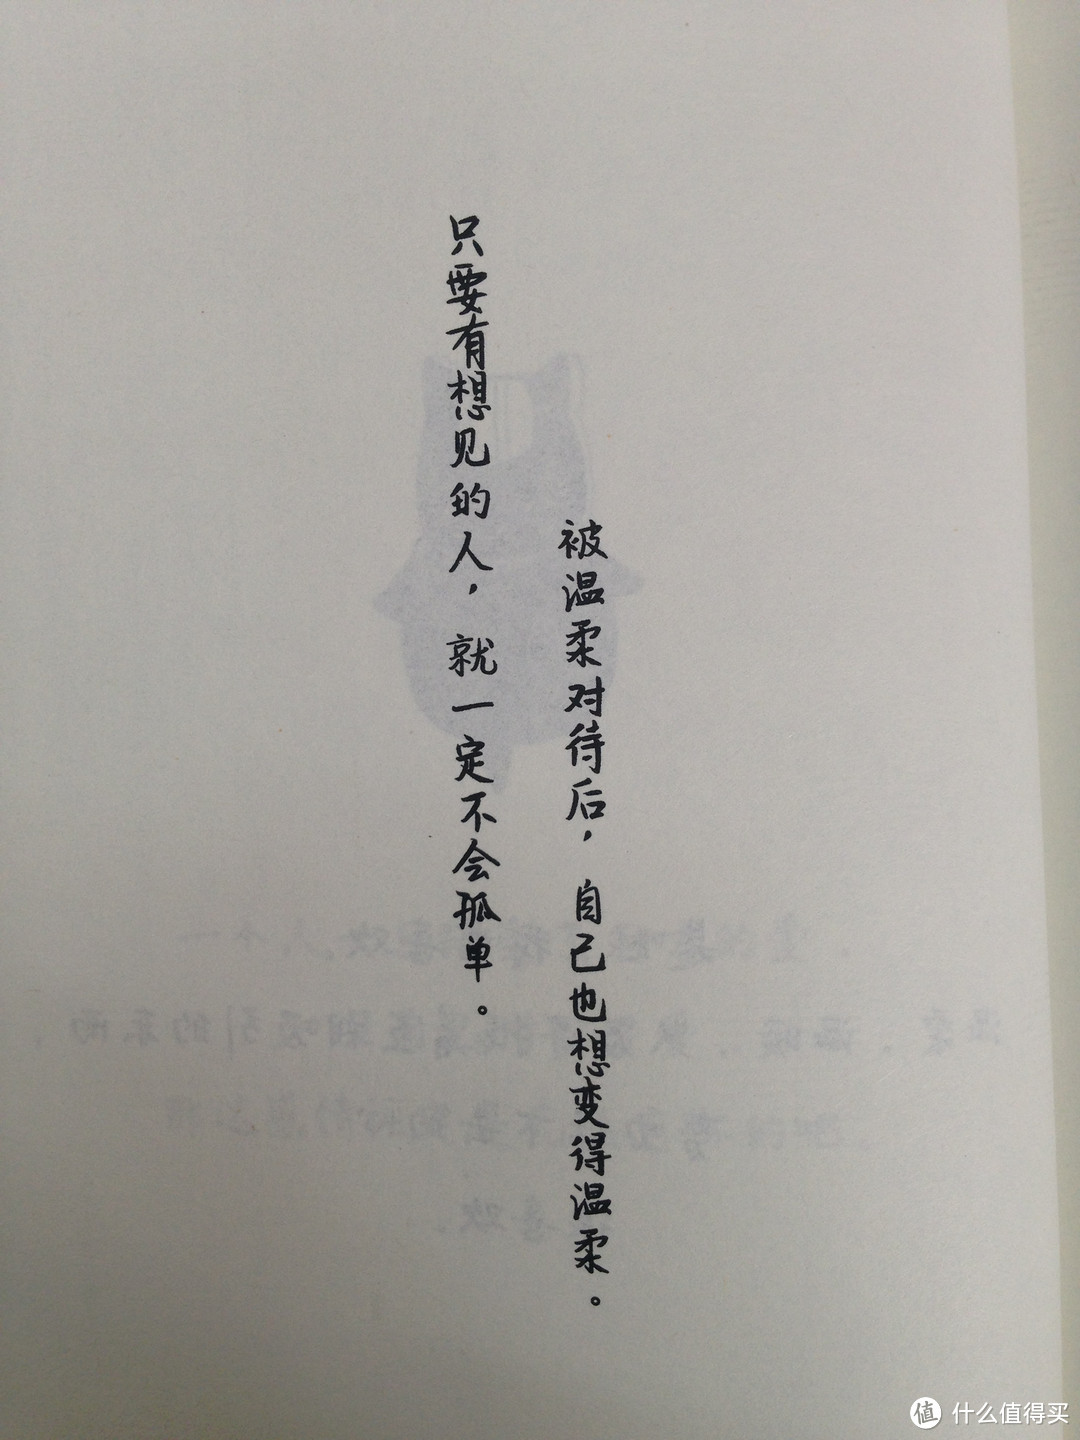 只要有想见的人，就一定不会孤单。
被温柔对待后，自己也想变得温柔。
值 什么值得买